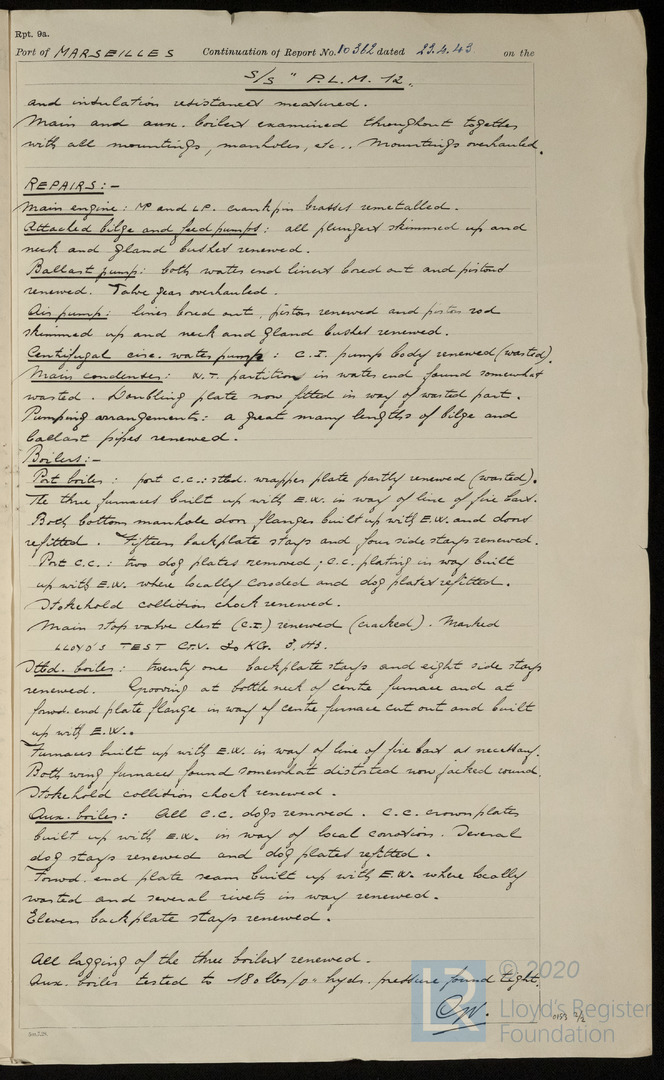 Rpt. 9a.
Port of MARSEILLES Continuation of Report No. 10362 dated 23.4.43 on the
S/S "P.L.M. 12"
and insulation resistances measured.
Main and aux. boilers examined throughout together
with all mountings, manholes, etc.. Mountings overhauled.
REPAIRS:-
Main engine: MP and LP. crankpin brasses remetalled.
Attached bilge and feed pumps: all plungers skimmed up and
neck and gland bushes renewed.
Ballast pump: both water end liners bored out and pistons
renewed. Valve gear overhauled.
Air pump: liner bored out, piston renewed and piston rod
skimmed up and neck and gland bushes renewed.
Centrifugal circ. water pump: C.I. pump body renewed (wasted).
Main condenser: W.T. partition in water end found somewhat
wasted. Doubling plate now fitted in way of wasted part.
Pumping arrangements: a great many lengths of bilge and
ballast pipes renewed.
Boilers:-
Port boiler: port C.C.: stbd. wrapper plate partly renewed (wasted).
The three furnaces built up with E.W. in way of line of fire bars.
Both bottom manhole door flanges built up with E.W. and doors
refitted. Fifteen backplate stays and four side stays renewed.
Port C.C.: two dog plates removed; C.C. plating in way built
up with E.W. where locally corroded and dog plates refitted.
Stokehold collision chock renewed.
Main stop valve chest (C.I.) renewed (cracked). Marked
LLOYD'S TEST 30 KG. 3.43.
Stbd. boiler: twenty one backplate stays and eight side stays
renewed. Grooving at bottle neck of centre furnace and at
forwd. end plate flange in way of centre furnace cut out and built
up with E.W..
Furnaces built up with E.W. in way of line of fire bars as necessary.
Both wing furnaces found somewhat distorted now jacked round.
Stokehold collision chock renewed.
Aux. boiler: All C.C. dogs removed. C.C. crown plates
built up with E.W. in way of local corrosion. Several
dog stays renewed and dog plates refitted.
Forwd. end plate seam built up with E.W. where locally
wasted and several rivets in way renewed.
Eleven backplate stays renewed.
All lagging of the three boilers renewed.
Aux. boiler tested to 180 lbs/□" hyds. pressure found tight.
© 2020
LR
Lloyd's Register
Foundation
0193 2/2